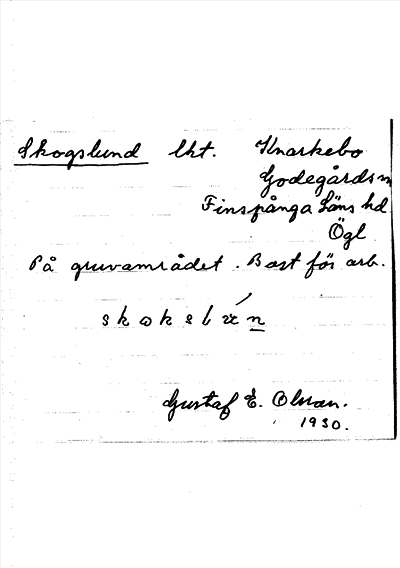 Skogslund lht. Knarkebo
Godegårds
Finspånga Läns hd
Ögl
På gruvområdet. Bost för arb.
Gustaf E. Olson.
1930.